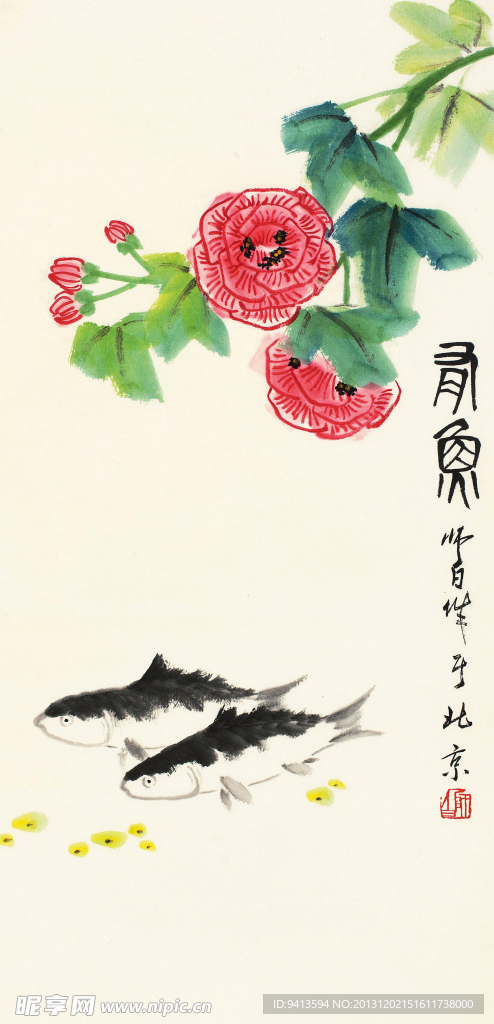 有魚
師白作于北京
昵享网 www.nipic.cn
ID:9413594 NO:20131202151611738000